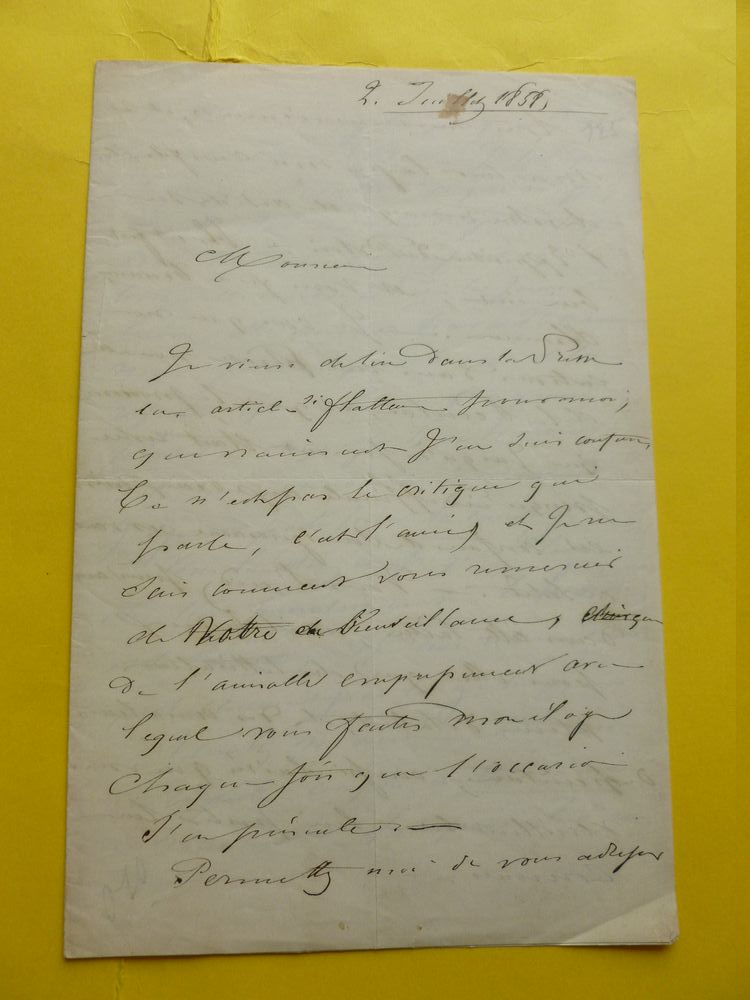 2. Juillet 1858,
Monsieur
Je viens de lire dans la Presse
un article si flatteur pour moi,
que vraiment j'en suis confus,
Ce n'est pas le critique qui
parle, c'est l'ami, et je ne
sais comment vous remercier
de votre bienveillance, chaque
de l'aimable empressement avec
lequel vous faites mon éloge
chaque fois que l'occasion
s'en présente. —
Permettez moi de vous adresser